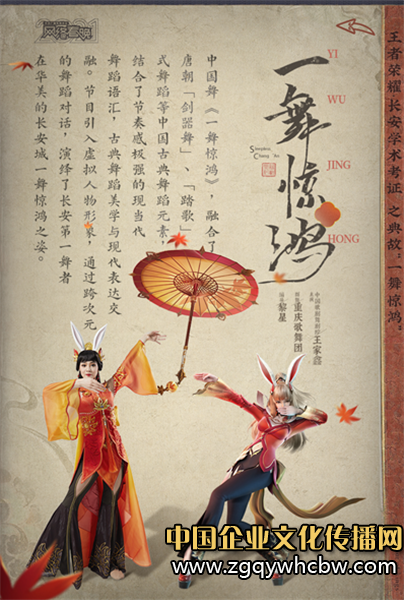 王者荣耀·长安学术考证 之典故:一舞惊鸿。
一舞惊鸿
YI
WU
JING
HONG
中国歌剧舞剧院 王家鑫
重庆歌舞团
黎星
中国舞《一舞惊鸿》,融合了
唐朝「剑器舞」、「踏歌」
式舞蹈等中国古典舞蹈元素,
结合了节奏感极强的现当代
舞蹈语汇,古典舞蹈美学与现代表达交
融。节目引入虚拟人物形象,通过跨次元
的舞蹈对话,演绎了长安第一舞者
在华美的长安城一舞惊鸿之姿。
中国企业文化传播网
www.zgqywhcbw.com